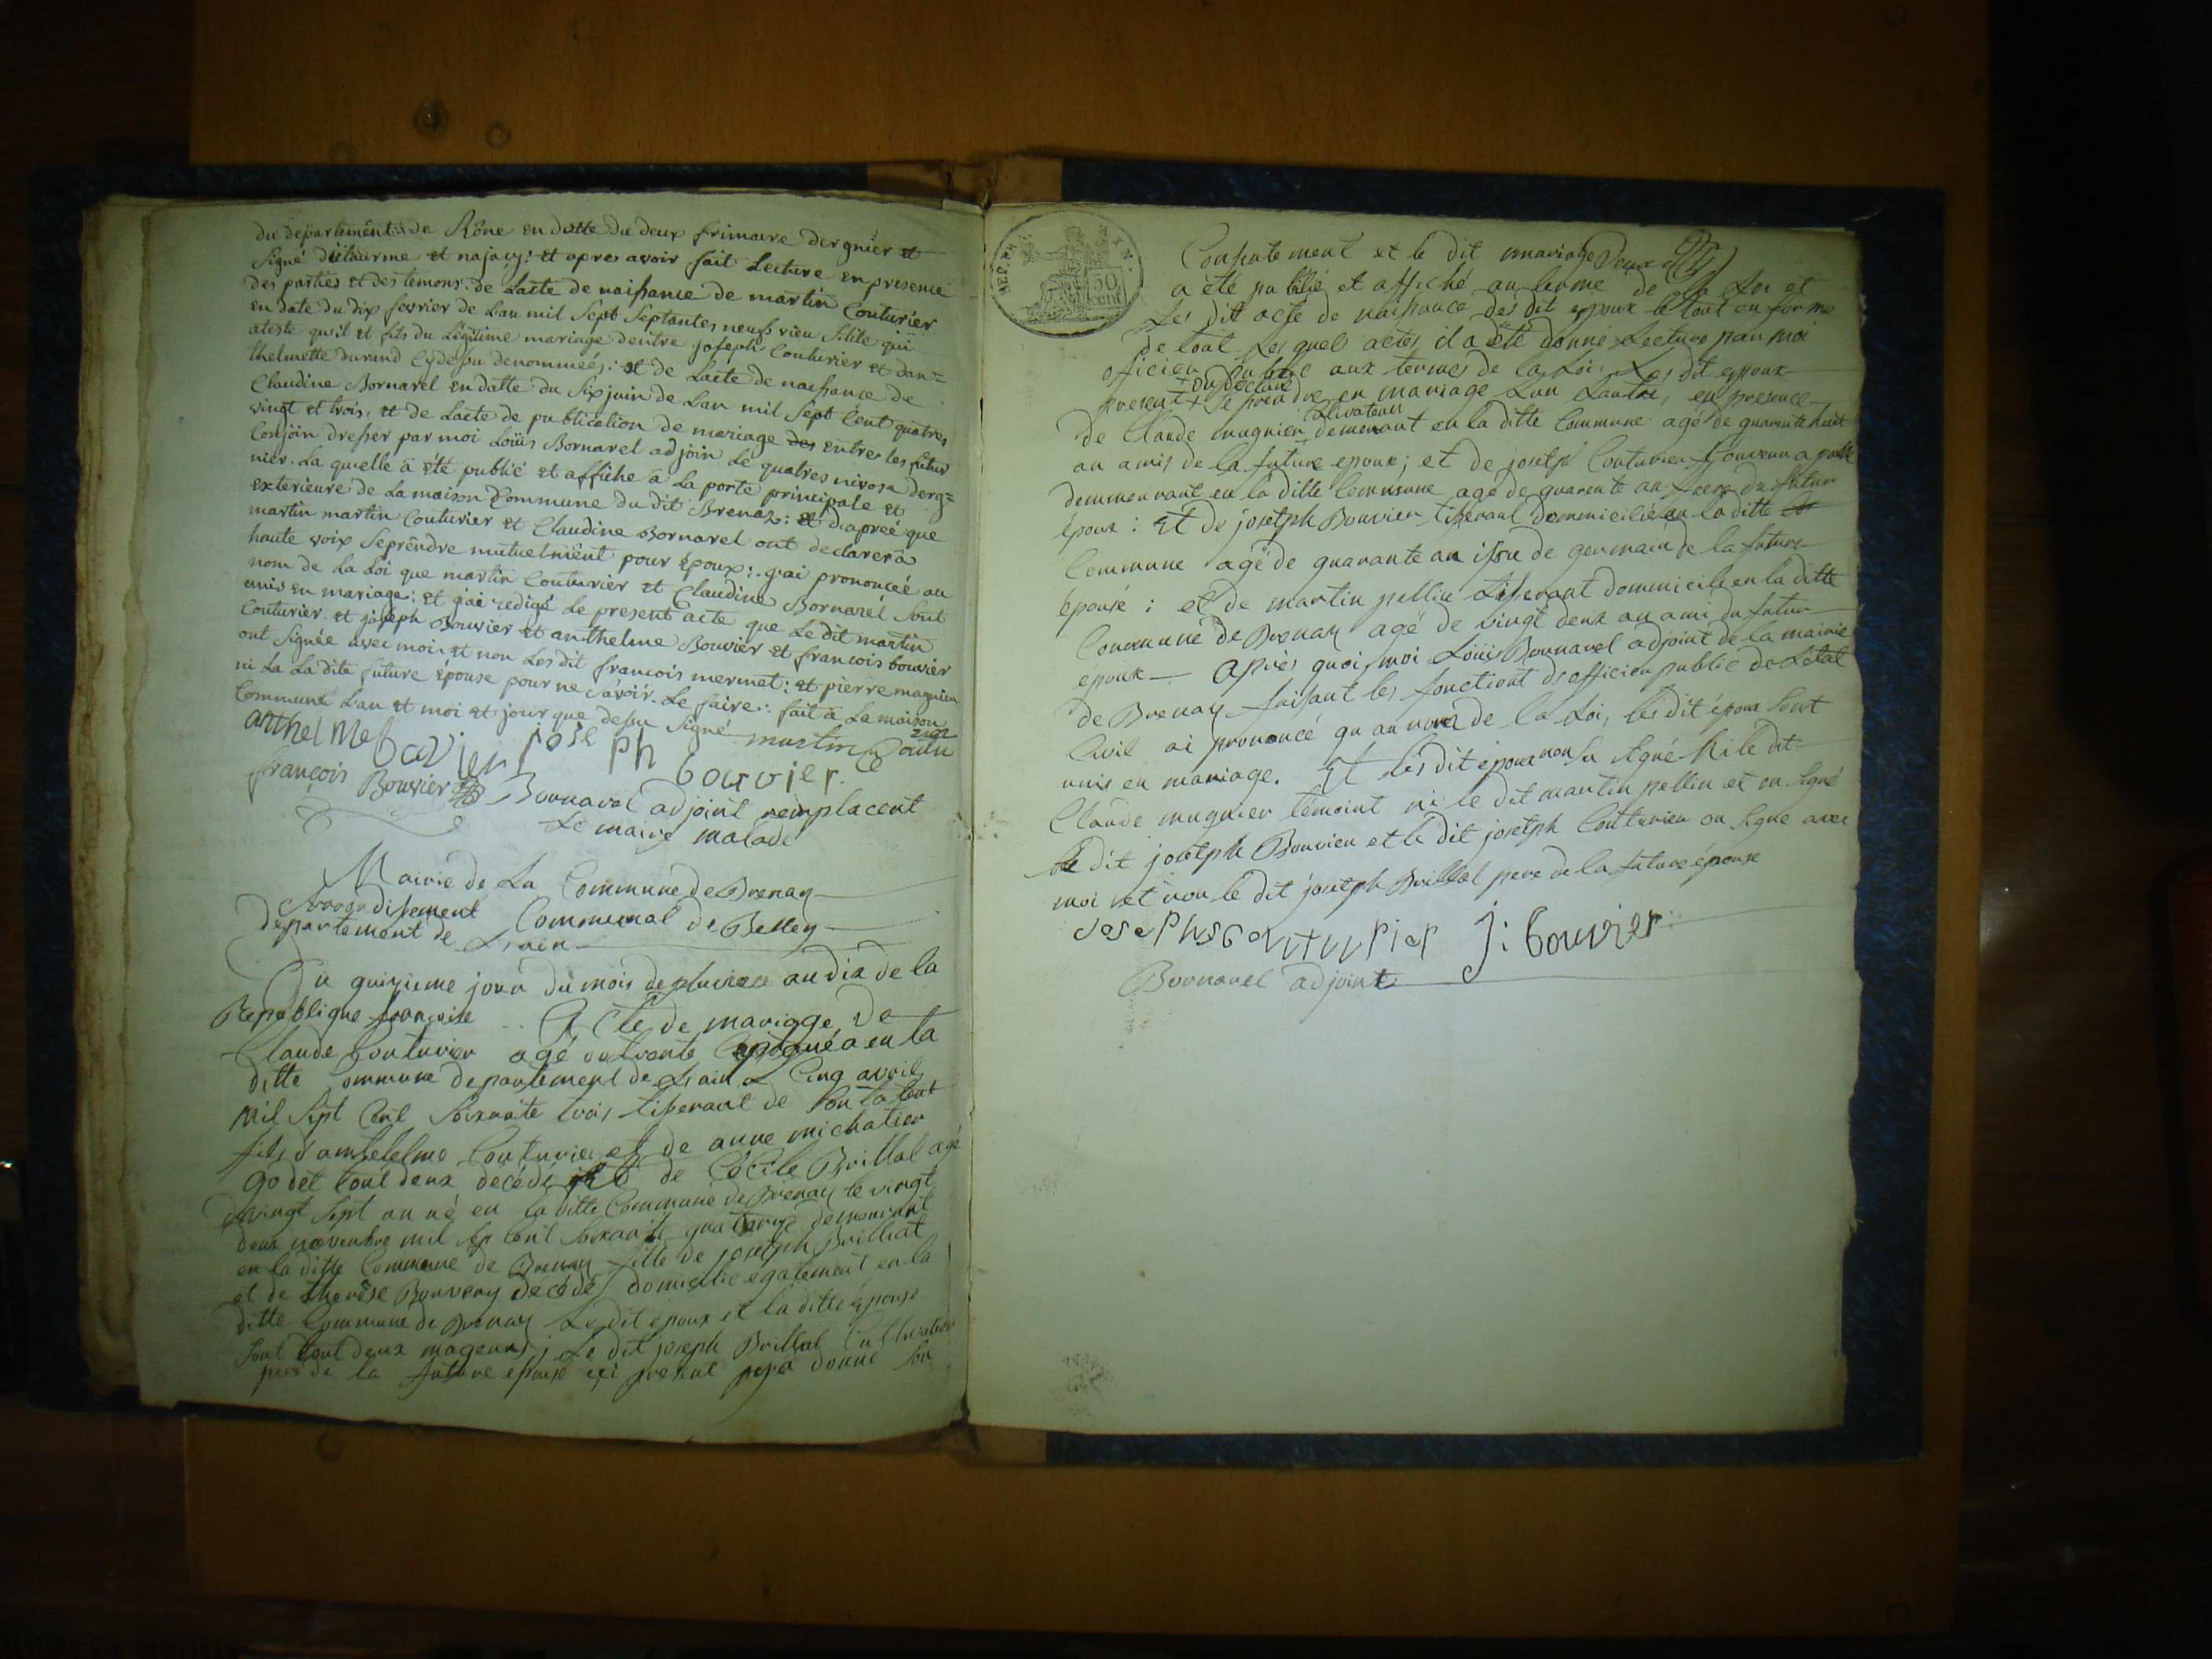 du departement de Rône en datte du deux frimaire dergnier et
Signé délaurme et najacy: et apres avoir fait Lecture en presence
des parties et des temons de Lacte de naissance de martin Couturier
en date du dix fevrier de Lan mil Sept Septantes neufs vieu Stile qui
ateste qu'il et fils du Légitime mariage dentre joseph Couturier et dan=
thelmette Durand Cydessu denommeés: et de Lacte de naissance de
Claudine Bornarel en datte du Six juin de Lan mil Sept Cent quatres
vingt et trois, et de Lacte de publication de mariage des entre les futur
Conjoin dresser par moi Loüis Bornarel adjoin Le quatres nivose derg=
nier. La quelle à été publié et affiche à La porte principale et
exterieure de La maison Commune du dit Brenaz: et d'apreé que
martin martin Couturier et Claudine Bornarel ont declarer à
haute voix Seprendre mutuelment pour époux: j'ai prononceé au
nom de La Loi que martin Couturier et Claudine Bornarel Sont
unis en mariage: et j'ai redigé Le present acte que Le dit martin
Couturier et joseph Bouvier et anthelme Bouvier et francois bouvier
ont Signée avec moi et non Les dit francois mermet: et pierre magnien
ni La Ladite future épouse pour ne Savoir Le faire: fait à La maison
Commune L'an et moi et jour que dessu Signé martin Coutu
rier
anthelme bovier joseph bouvier
françois Bouvier Bornarel adjoint remplacent
Le maire malade
Mairie de La Commune de Brenay
Arrondisement Communal de Belley
departement de Lain
Du quinzieme jour du mois de pluviose an dix de la
Republique francoise Acte de mariage de
Claude Couturier agé de trente an né a en la
ditte Commune departement de Lain Le Cinq avril
mil Sept Cent Soixante trois tisserant de
fils d'anthelelme Couturier et de anne michatier
godet tout deux décédé et de Cécile Brillat agé
vingt Sept an né en la ditte Commune de Brenay le vingt
deux novenbre mil Sep Cent Soixante quatorze demeurant
en la ditte Commune de Brenay fille de josetph Brilliat
et de therèse Bouveny décédé domicilie egalement en la
ditte Commune de Brenay Le dit epoux et la ditte épouse
Sont tout deux mageurs; Le dit joseph Brillat Cultivateur
pere de la future epouse ici present donne Son
REP. FRA.
50
cent
Consentement et le dit mariage
a été publié et affiché au terme de la Loi et
Les dit acte de naissance des dit époux le tout en forme
de tout Les quel actes il a été donné Lecture par moi
officier public aux termes de la Loi. Les dit epoux
+ on déclaré
present + Se prendre en mariage Lun Lautre, en presence
Cultivateur
de Claude mugnier demeurant en la ditte Commune agé de quarante huit
an amis de la future epoux; et de josetph Couturier
demmeurant en la ditte Commune agé de quarante an frere du futur
époux: Et de josetph Bouvier tisserant dommicilié en la ditte
Commune agé de quarante an issu de germain de la future
épouse: et de martin pellin tisserant dommicilié en la ditte
Commune de Brenay agé de vingt deux an ami du futur
époux — Après quoi, moi Loüis Bornarel adjoint de la mairie
de Brenay faisant les fonctiont d'officier public de Létat
Civil ai prononcé qu au nom de la Loi, les dit époux Sont
unis en mariage. Et les dit époux non Su Signé Ni le dit
Claude mugnier témoint ni le dit martin pellin et on Signé
le dit josetph Bouvier et le dit josetph Couturier on Signe avec
moi et non le dit josetph Brillat pere de la future épouse
Josephs couturier J: bouvier
Bornarel adjoint